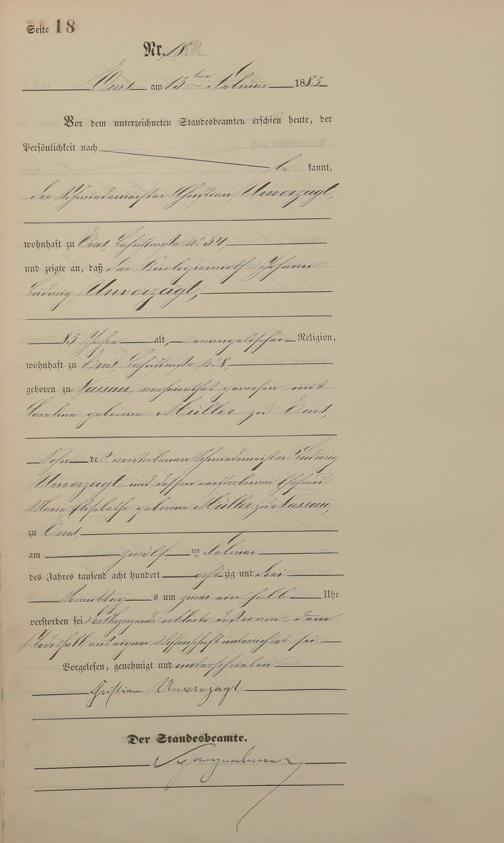 Seite 18
Nr. 18
Ems am 13ten Februar 1883
Vor dem unterzeichneten Standesbeamten erschien heute, der
Persönlichkeit nach
be kannt,
der Schmiedemeister Christian Unverzagt,
wohnhaft zu Ems, No 34
und zeigte an, daß der Johann
Ludwig Unverzagt,
85 Jahre alt, evangelischer Religion,
wohnhaft zu Ems, No 8,
geboren zu Nassau, verheirathet gewesen mit
Caroline geborene Müller zu Ems,
Sohn des verstorbenen Schmiedemeister Ludwig
Unverzagt und dessen verstorbenen Ehefrau
Maria Elisabetha geborene Müller zu Nassau,
zu Ems
am zwölf ten Februar
des Jahres tausend acht hundert achtzig und drei
Vormittags um zwei ein halb Uhr
verstorben sei
aus eigener Wissenschaft unterrichtet sei
Vorgelesen, genehmigt und unterschrieben
Christian Unverzagt
Der Standesbeamte.